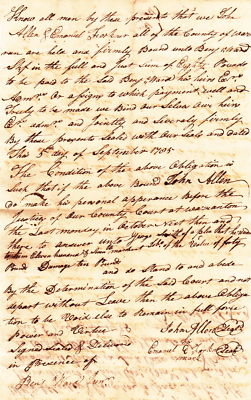 Know all men by these presents that we John
Allen & Emanuel Forkner all of the County of war
ren are held and firmly Bound unto Benj Ward
Esqr in the full and Just Sum of Eighty Pounds
to be paid to the Said Benj Ward his heirs Exrs
Admrs Or assigns to which payment well and
Truly to be made we Bind our Selves our heirs
Exrs admrs and Jointly and Severaly firmly
By these presents Sealed with our Seals and Dated
This 5th day of September 1785
The Condition of the above Obligation is
Such that if the above Bound John Allen
do make his personal appearance before the
Justices of Our County Court at warrenton
the Last monday in October next then and
there to answer unto
of a plea that he render
to him Eleven hundred & of the Value of fifty
Pound Damage ten Pound
and do Stand to and abide
By the Determination of the Said Court and not
depart without Leave then the above Obliga
tion to be Void else to Remain in full force
power and Virtue
John Allen
Signed Sealed & Delivered
in presence of
Emanuel
his
mark
Benj Ward Junr